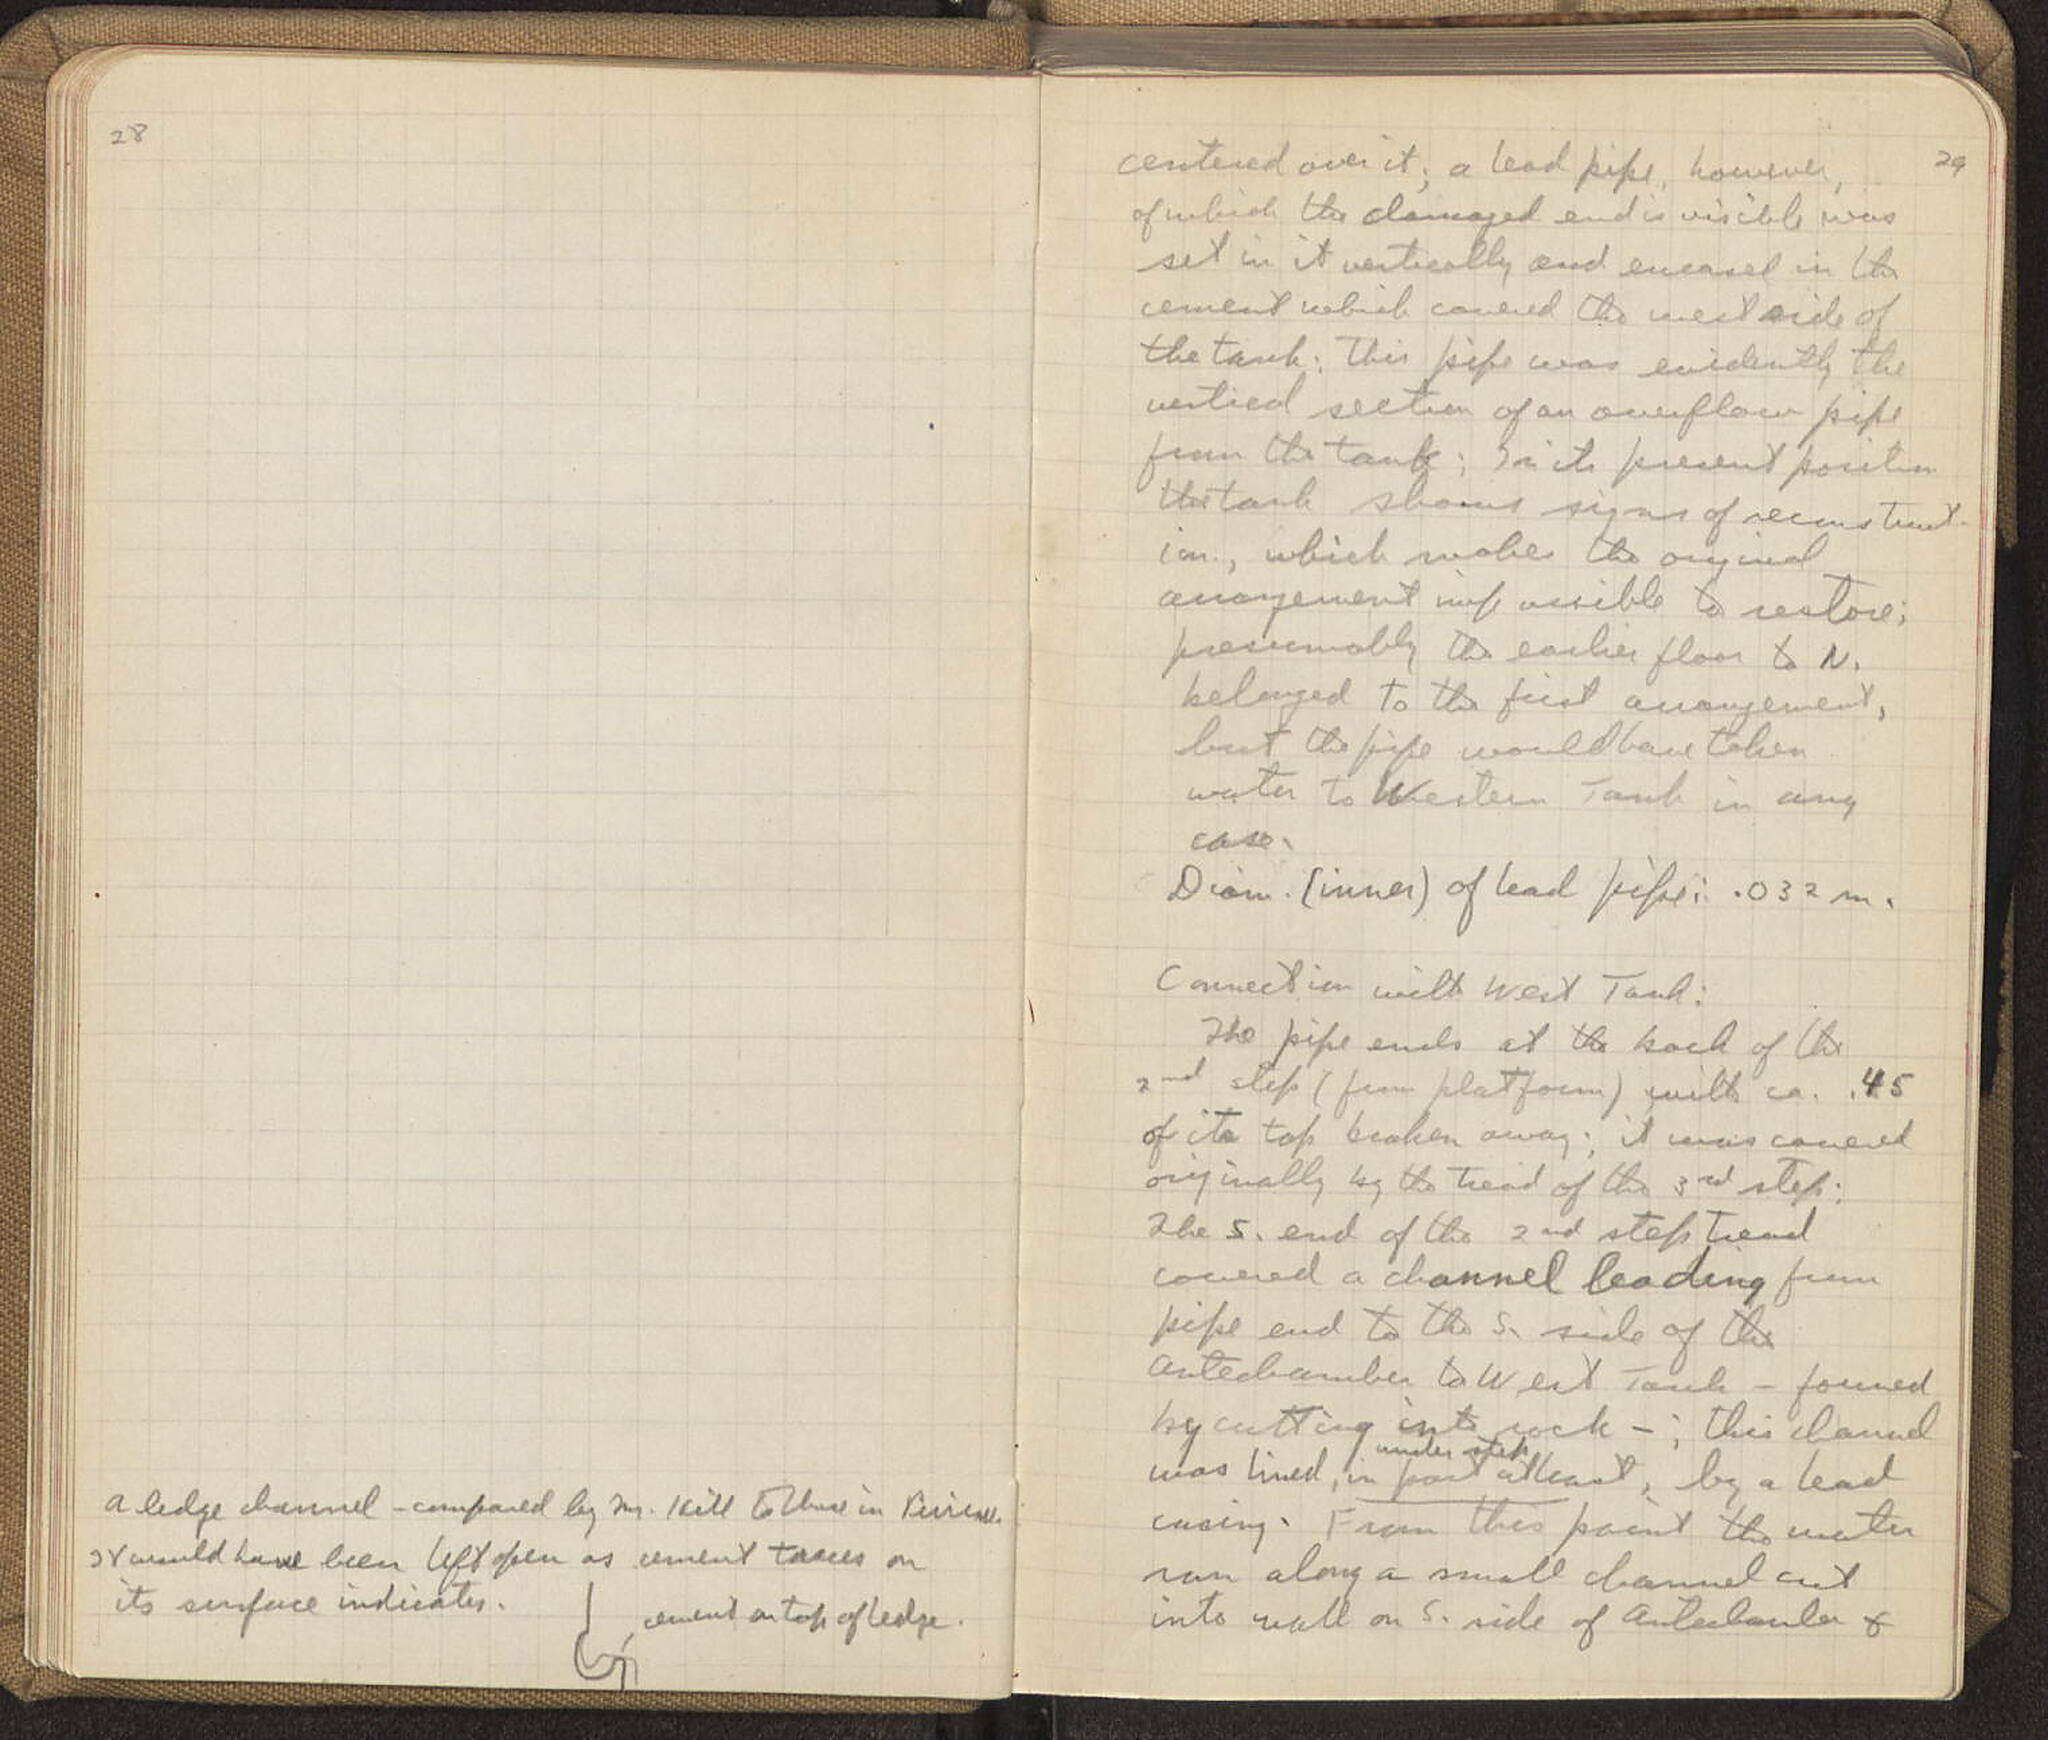 28
a ledge channel - compared by Mr. Hill to those in
It would have been left open as cement traces on
its surface indicates.
cement on top of ledge.
29
centered over it; a lead pipe, however,
of which the damaged end is visible was
set in it vertically and encased in the
cement which covered the west side of
the tank: This pipe was evidently the
vertical section of an overflow pipe
from the tank; In its present position
the tank shows signs of reconstruct-
ion, which makes the original
arrangement impossible to restore;
presumably the earlier floor to N.
belonged to the first arrangement,
but the pipe would have taken
water to Western Tank in any
case.
Diam. (inner) of lead pipe: .032 m.
Connection with West Tank:
The pipe ends at the back of the
2nd step (from platform) with ca. .45
of its top broken away; it was covered
originally by the tread of the 3rd step:
The S. end of the 2nd step tread
covered a channel leading from
pipe end to the S. side of the
Antechamber to West Tank - formed
by cutting into rock - ; this channel
under step
was lined, in part at least, by a lead
casing. From this point the water
ran along a small channel cut
into wall on S. side of Antechamber &